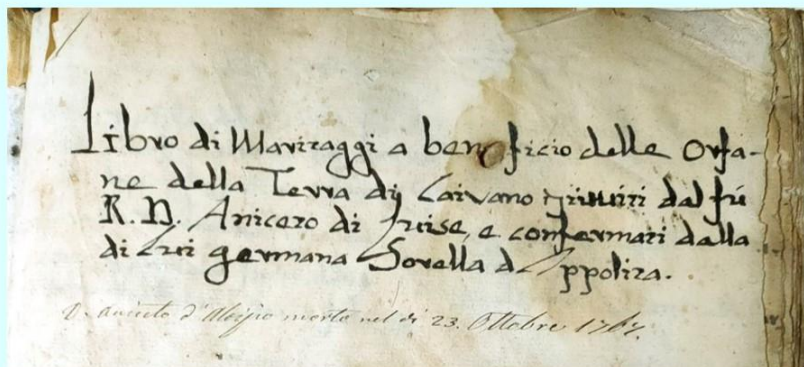 Libro di Maritaggi a beneficio delle Orfa-
ne della Terra di Caivano istituiti dal fù
R. D. Aniceto di Luise, e confermati dalla
di Lui germana Sorella D. Ippolita.
D. Aniceto d'Aloisio morto nel dì 23. Ottobre 1767.